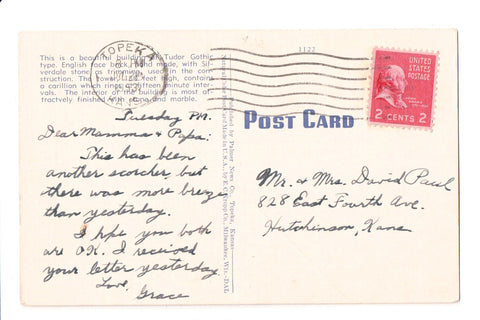 This is a beautiful building of Tudor Gothic
type. English face brick, hand made, with Sil-
verdale stone as trimming, used in the con-
struction. The tower, feet high, contains
a carillion which rings at fifteen minute inter-
vals. The interior of the building is most at-
tractively finished with stone and marble.
TOPEKA
PM
KANS.
1122
UNITED
STATES
POSTAGE
2 CENTS 2
POST CARD
Published by Palmer News Co., Topeka, Kansas
Made in U.S.A. by E. C. Kropp Co., Milwaukee, Wis.
Tuesday PM.
Dear Mamma & Papa:
This has been
another scorcher, but
there was more breeze
than yesterday.
I hope you both
are O.K. I received
your letter yesterday.
Love,
Grace
Mr. & Mrs. David Paul
828 East Fourth Ave.
Hutchinson, Kans